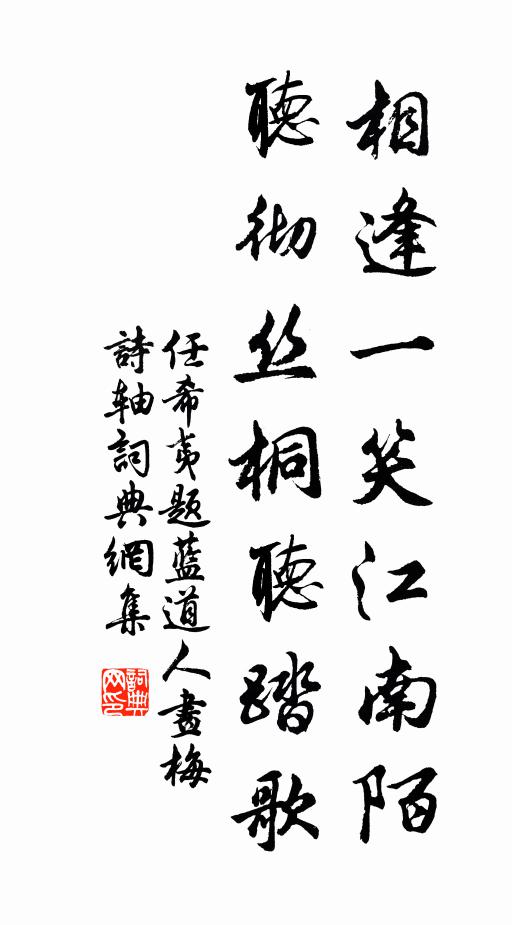 相逢一笑江南陌
聽彻丝桐聽踏歌
任希夷题藍道人畫梅
詩轴詞典網集
詞典网印